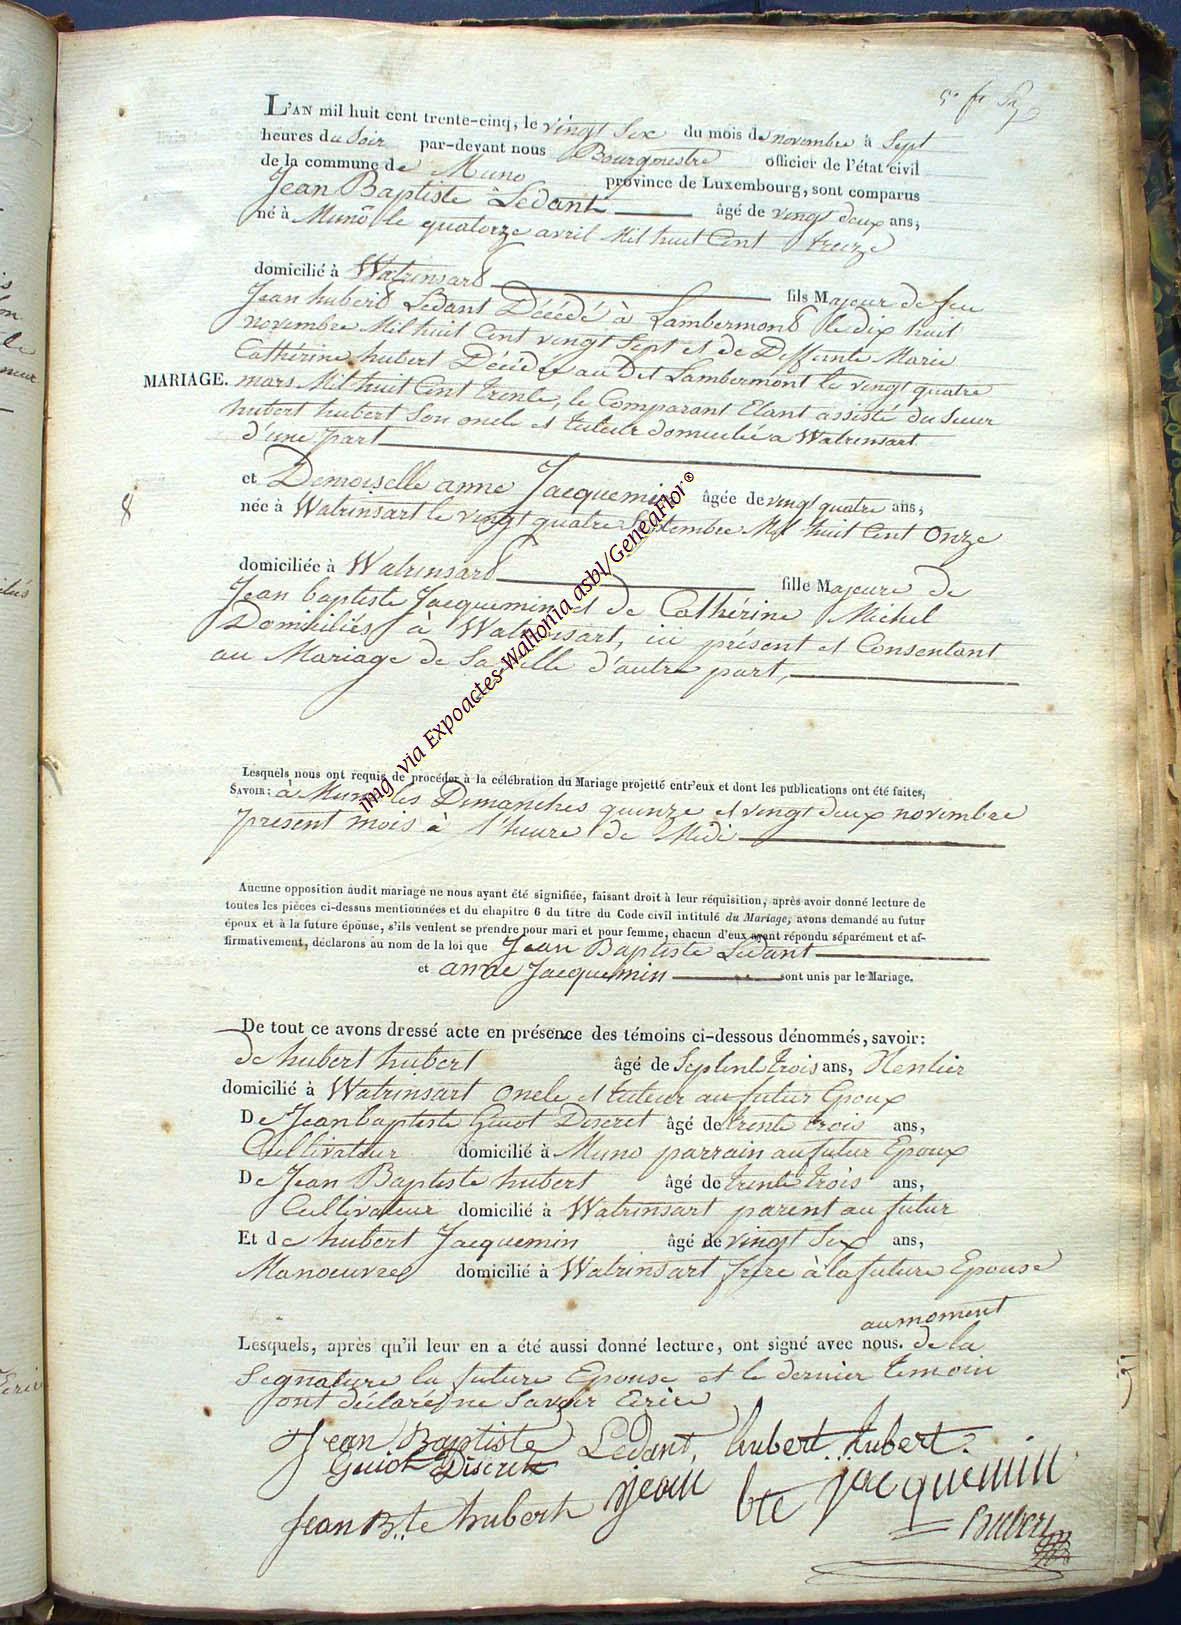 L'AN mil huit cent trente-cinq, le vingt Six du mois de novembre à Sept
heures du Soir par-devant nous Bourgmestre officier de l'état civil
de la commune de Muno province de Luxembourg, sont comparus
Jean Baptiste Ledant âgé de vingt deux ans,
né à Muno le quatorze avril Mil huit Cent treize
domicilié à Watrinsard fils Majeur de feu
Jean hubert Ledant Décédé à Lambermont le dix huit
novembre Mil huit Cent vingt Sept et de Deffunte Marie
Cathérine hubert Décédée au Dit Lambermont le vingt quatre
MARIAGE. mars Mil huit Cent trente, le Comparant Etant assisté du Sieur
hubert hubert Son oncle et tuteur domicilié a Watrinsart
d'une part
et Demoiselle anne Jacquemin âgée de vingt quatre ans,
8 née à Watrinsart le vingt quatre Septembre Mil huit Cent Onze
domiciliée à Watrinsard fille Majeure de
Jean baptiste Jacquemin et de Cathérine Michel
Domiciliés à Watrinsart, ici présent et Consentant
au Mariage de Sa fille d'autre part,
Lesquels nous ont requis de procéder à la célébration du Mariage projetté entr'eux et dont les publications ont été faites,
SAVOIR: à Muno les Dimanches quinze et vingt deux novembre
présent mois à l'heure de Midi
Aucune opposition audit mariage ne nous ayant été signifiée, faisant droit à leur réquisition, après avoir donné lecture de
toutes les pièces ci-dessus mentionnées et du chapitre 6 du titre du Code civil intitulé du Mariage, avons demandé au futur
époux et à la future épouse, s'ils veulent se prendre pour mari et pour femme, chacun d'eux ayant répondu séparément et af-
firmativement, déclarons au nom de la loi que Jean Baptiste Ledant
et anne Jacquemin sont unis par le Mariage.
De tout ce avons dressé acte en présence des témoins ci-dessous dénommés, savoir:
de hubert hubert âgé de Septent trois ans, Rentier
domicilié à Watrinsart Oncle et tuteur au futur Epoux
De Jean baptiste Guiot Discret âgé de trente trois ans,
Cultivateur domicilié à Muno parrain au futur Epoux
De Jean Baptiste hubert âgé de trente trois ans,
Cultivateur domicilié à Watrinsart parent au futur
Et de hubert Jacquemin âgé de vingt Six ans,
Manoeuvre domicilié à Watrinsart frère à la future Epouse
au moment
Lesquels, après qu'il leur en a été aussi donné lecture, ont signé avec nous. de la
Segnature la future Epouse et le dernier temoin
ont déclaré ne Savoir Ecrire
Jean Baptiste Ledant, hubert hubert.
Guiot Discret
jean bte jacquemin
Jean B..te hubert
img via Expoactes-Wallonia asbl/GeneaFlor®